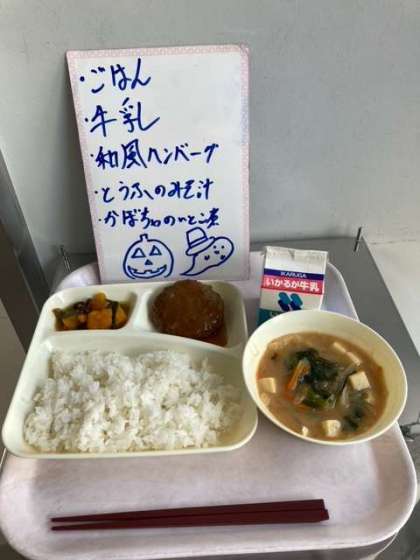 ・ごはん
・牛乳
・和風ハンバーグ
・とうふのみそ汁
・かぼちゃのいとこ煮
IKARUGA
いかるが牛乳